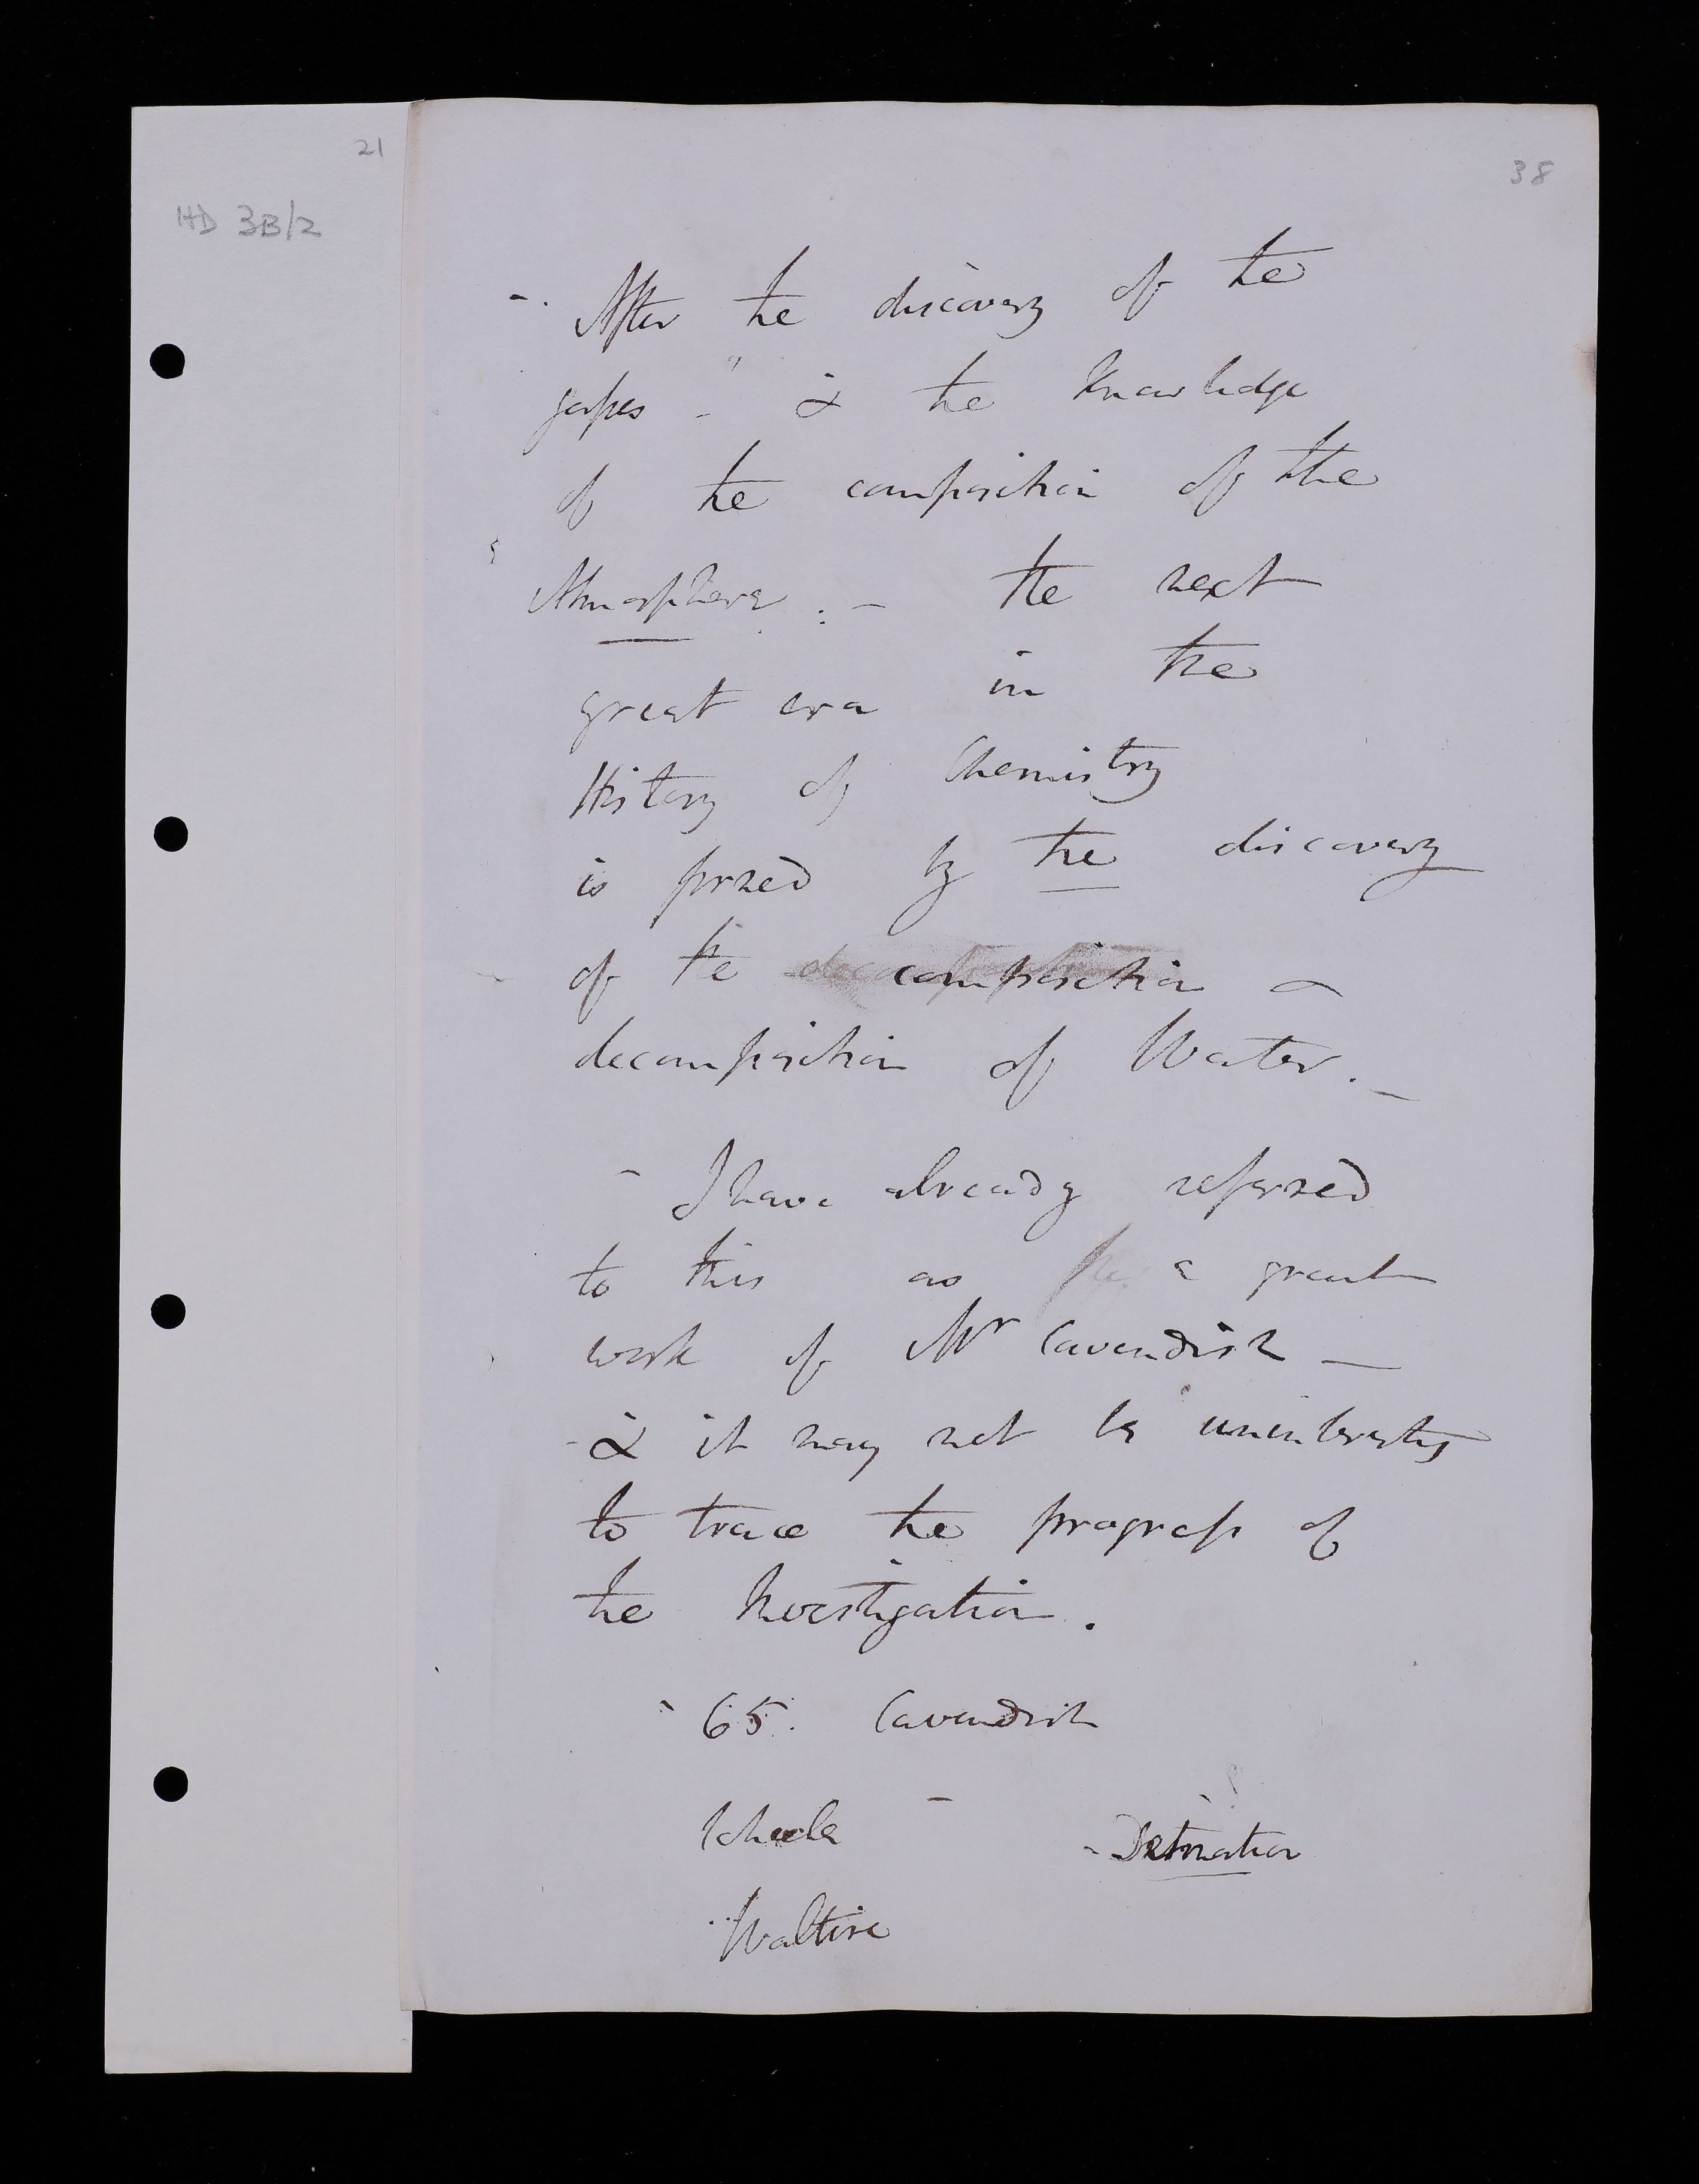 21
HD 3B/2
38
-. After the discovery of the
gasses - & the knowledge
of the composition of the
Atmosphere : - the next
great era in the
History of Chemistry
is formed by the discovery
of the composition &
decomposition of Water. -
- I have already referred
to this as a great
work of Mr Cavendish -
- & it may not be uninteresting
to trace the progress of
the Investigation.
- 65. Cavendish
Scheele - - Detonation
Waltire